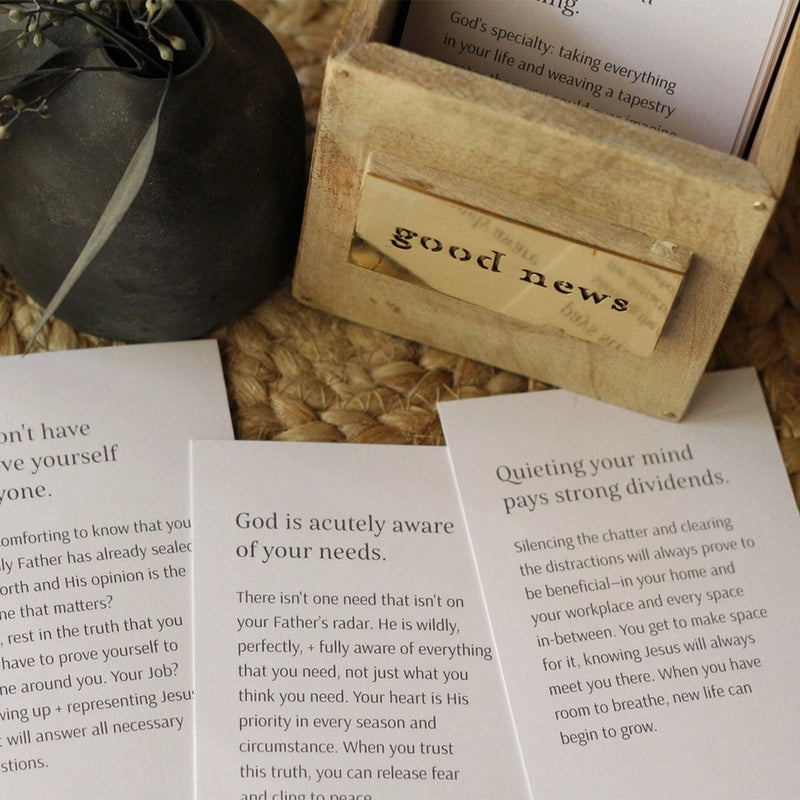 God's specialty: taking everything
in your life and weaving a tapestry
good news
on't have
ve yourself
yone.
omforting to know that you
ly Father has already sealed
orth and His opinion is the
ne that matters?
, rest in the truth that you
have to prove yourself to
ne around you. Your Job?
wing up + representing Jesus
t will answer all necessary
stions.
God is acutely aware
of your needs.
There isn't one need that isn't on
your Father's radar. He is wildly,
perfectly, + fully aware of everything
that you need, not just what you
think you need. Your heart is His
priority in every season and
circumstance. When you trust
this truth, you can release fear
and cling to peace
Quieting your mind
pays strong dividends.
Silencing the chatter and clearing
the distractions will always prove to
be beneficial—in your home and
your workplace and every space
in-between. You get to make space
for it, knowing Jesus will always
meet you there. When you have
room to breathe, new life can
begin to grow.